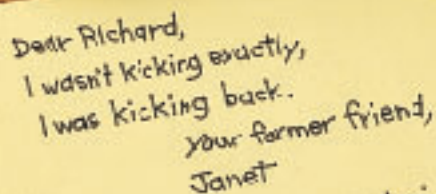 Dear Richard,
I wasn't kicking exactly,
I was kicking back.
your former friend,
Janet